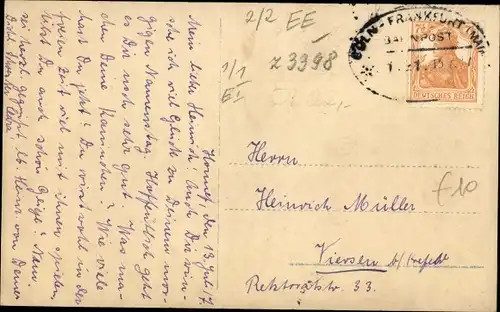 2/2 EE
1/1
EI
Z 3398
CÖLN - FRANKFURT (MAIN)
BAHNPOST
DEUTSCHES REICH
Honnef, den 13. Juli 17.
Mein lieber Heinrich! Auch Dir wün-
sche ich viel Glück zu Deinem mor-
gigen Namenstag. Hoffentlich geht
es Dir noch sehr gut. Was ma-
chen Deine Kaninchen? Wie viele
hast Du jetzt? Du wirst wohl in der
freien Zeit viel mit ihnen spielen.
Übst Du auch schön Geige? Nun,
sei herzl. gegrüßt, lb. Heinr. von Deiner
Dich
Herrn
Heinrich Müller
Viersen b/Krefeld
Rektoratstr. 33.
£10